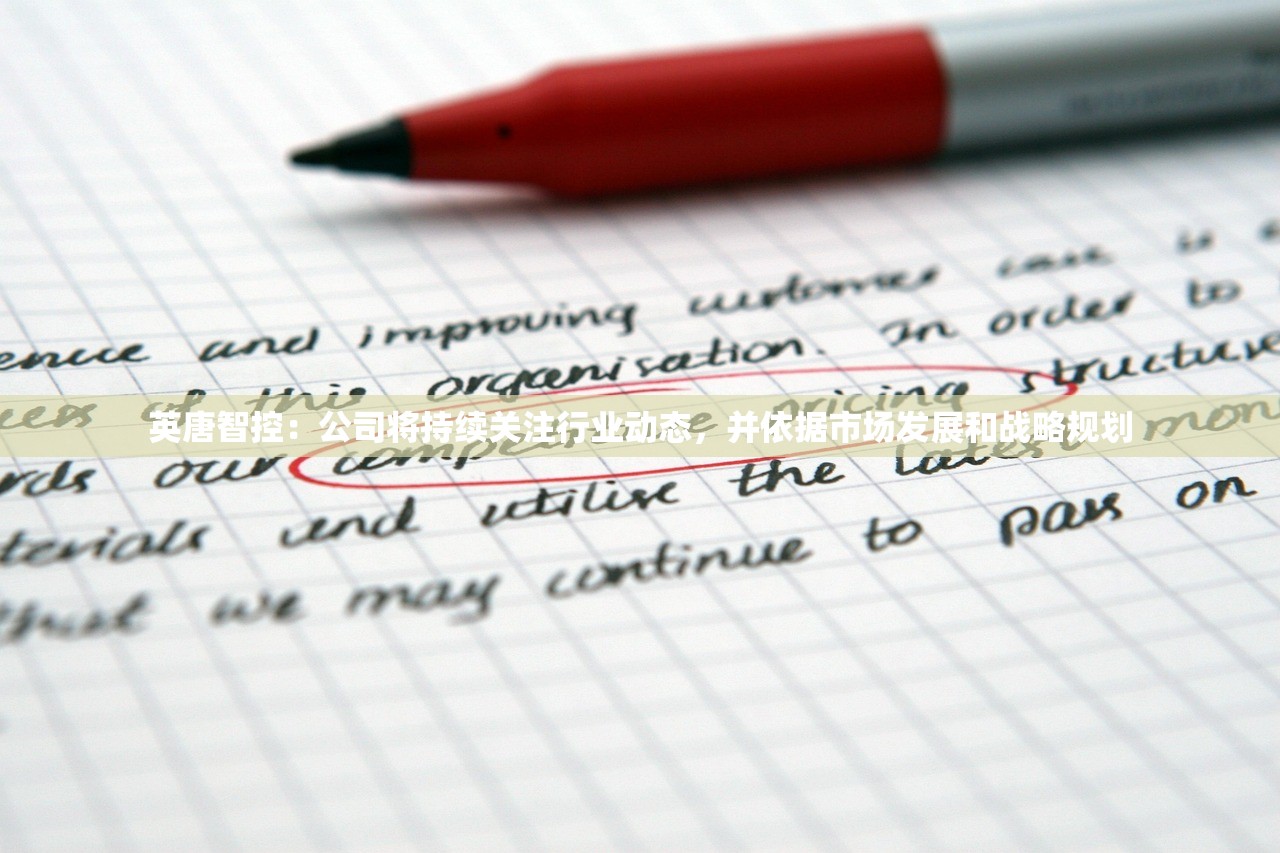 enue and improving customer care is
of this organisation. In order to
英唐智控：公司将持续关注行业动态，并依据市场发展和战略规划
pricing structure
rds our the latest mon
terials and utilise
that we may continue to pass on